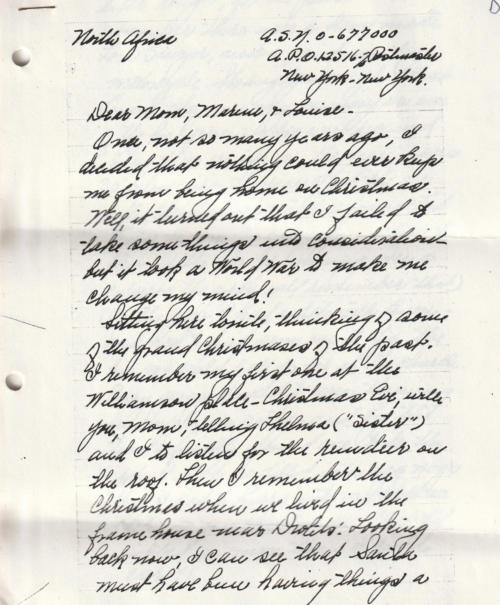 North Africa
A.S.N. O-677000
A.P.O. 12516-% Postmaster
New York - New York.
Dear Mom, Marine, & Louise -
Once, not so many years ago, I
decided that nothing could ever keep
me from being home on Christmas.
Well, it turned out that I failed to
take some things into consideration -
but it took a World War to make me
change my mind!
Sitting here tonite, thinking of some
of the grand Christmases of the past.
I remember my first one at the
Williamson place - Christmas Eve, with
you, Mom, telling Thelma ("Sister")
and I to listen for the reindeer on
the roof. Then I remember the
Christmas when we lived in the
frame house near Looking
back now, I can see that Santa
must have been having things a